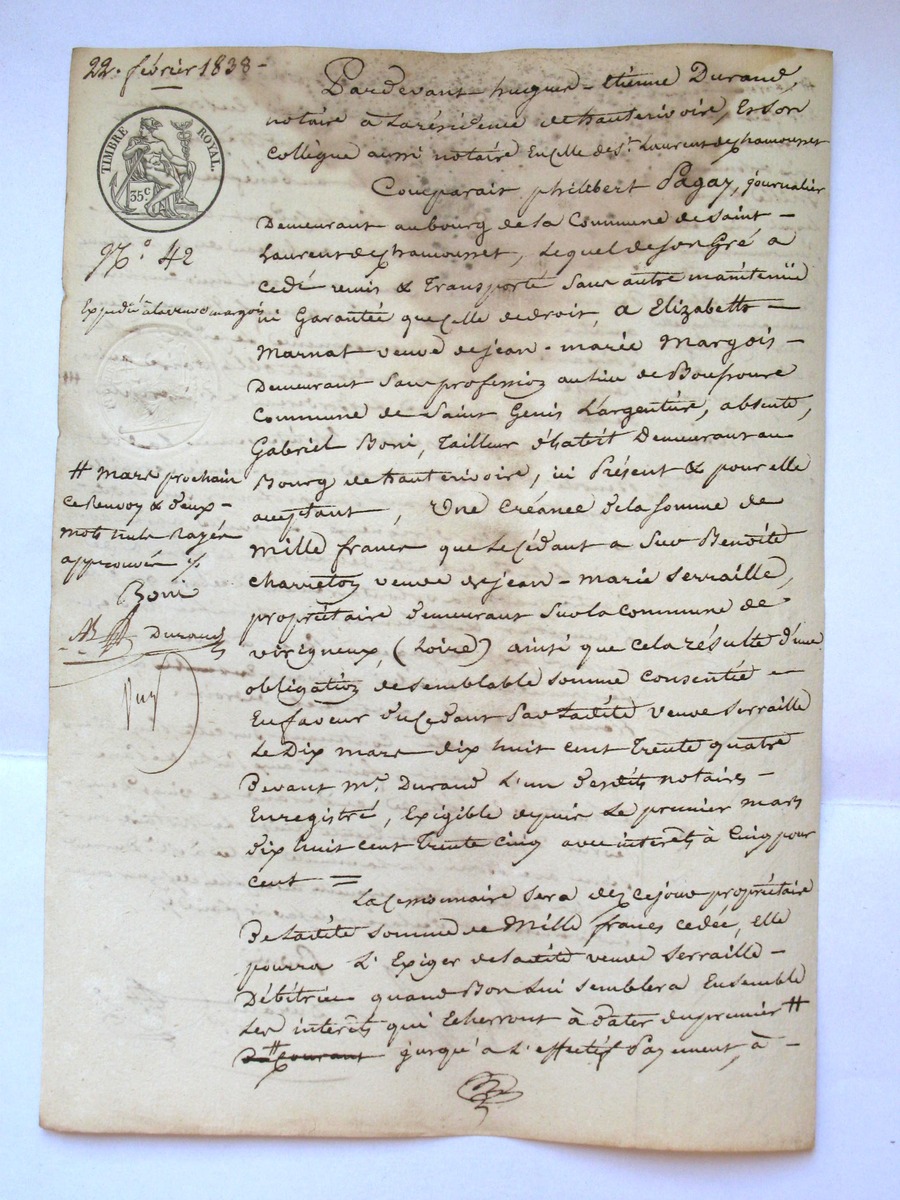 22. février 1838 -
TIMBRE ROYAL.
35 c
N.º 42
Expédié à la veuve margois
# mars prochain
ce renvoy & deux
mots nuls rayés
approuvés
Boni
Durand
Pardevant hugues-étienne Durand,
notaire à la résidence de hauterivoire, et son
collègue aussi notaire en celle de St. Laurent de chamousset
Comparait philibert Pagay, journalier
Demeurant au bourg de la commune de Saint-
Laurent de chamousset, lequel de son gré a
cédé remis & transporté sans autre maintenüe
ni Garantie que celle de droit, a Elizabeth
Marnat veuve de jean-marie Margois-
Demeurant sans profession au lieu de
Commune de Saint Genis L'argentière, absente,
Gabriel Boni, tailleur d'habit Demeurant au
Bourg de hauterivoire, ici Présent & pour elle
acceptant, Une Créance de la somme de
mille francs que le cédant a sur Benoite
charreton veuve de jean-marie serraille,
propriétaire demeurant sur la commune de
virigneux, (Loire) ainsi que cela résulte d'une
obligation de semblable somme consentie -
En faveur du cédant par ladite veuve serraille
Le Dix mars dix huit cent trente quatre
Devant me. Durand l'un desdits notaires -
Enregistré, exigible depuis le premier mars
dix huit cent trente cinq avec intérêts à cinq pour
cent =
La cessionnaire sera dez ce jour propriétaire
De ladite somme de Mille francs cedée, elle
pourra l'Exiger de ladite veuve serraille -
Débitrice quand Bon lui semblera Ensemble
Les intérêts qui Echerront à dater du premier #
Du courant jusqu'à l'effectif Payement, à -